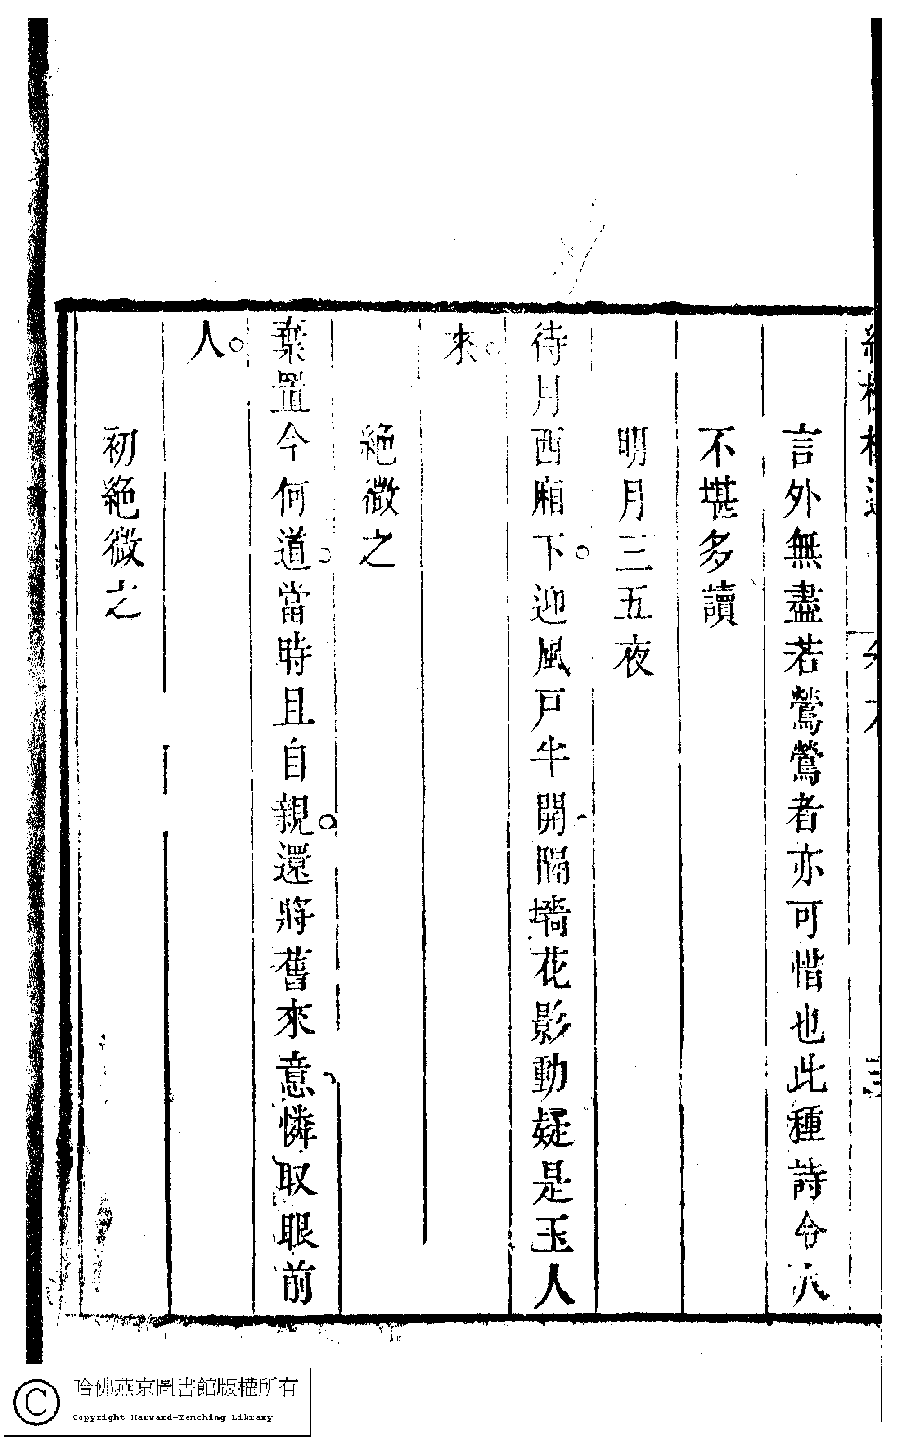 言外無盡若鶯鶯者亦可惜也此種詩令人
不堪多讀
明月三五夜
待月西廂下。迎風戶半開隔墻花影動疑是玉人
來。
絶微之
棄置今何道。當時且自親。還將舊來意、憐取眼前
人。
初絶微之
哈佛燕京圖書館版權所有
Copyright Harvard-Yenching Library